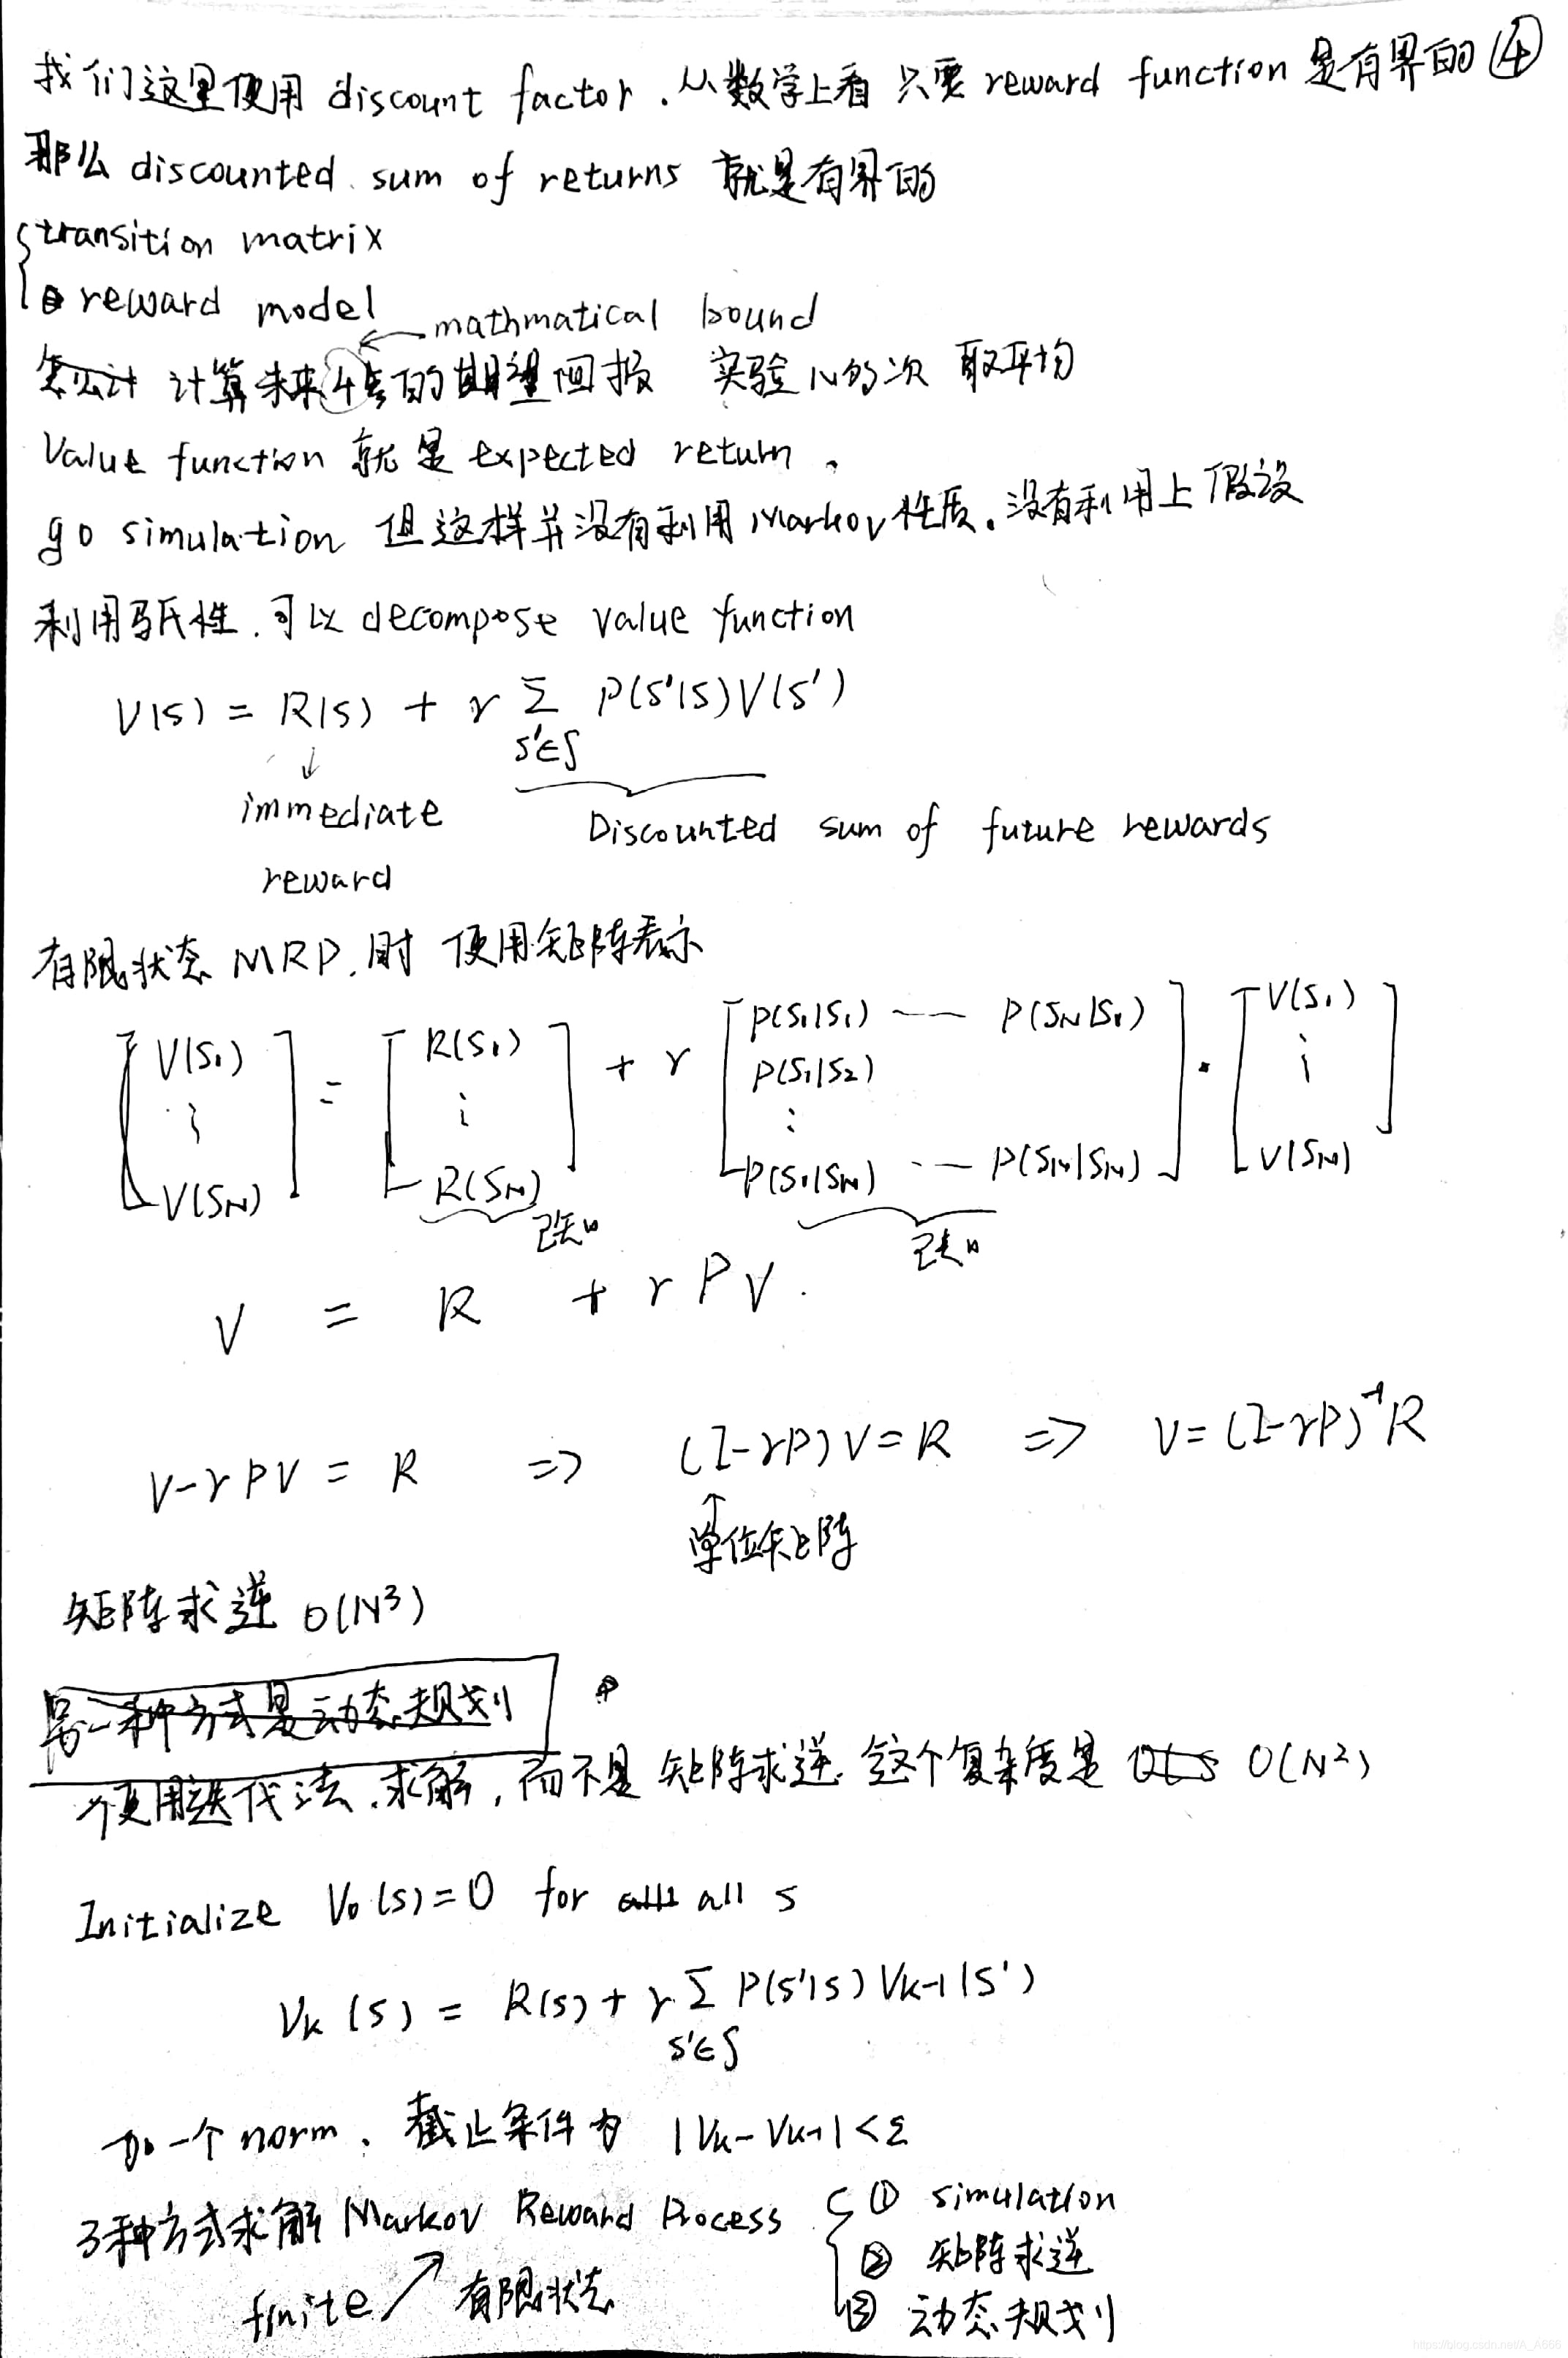 我们这里使用 discount factor. 从数学上看 只要 reward function 是有界的 ④
那么 discounted sum of returns 就是有界的
transition matrix
reward model
mathmatical bound
计算未来4步的期望回报 实验 N的次 取平均
Value function 就是 expected return.
go simulation 但这样并没有利用 Markov 性质。没有利用上假设
利用马氏性. 可以 decompose value function
V(s) = R(s) + γ Σ P(s'|s)V(s')
s'∈S
immediate reward
Discounted sum of future rewards
有限状态 MRP. 时 使用矩阵表示
[V(S₁) ⋮ V(SN)] = [R(S₁) ⋮ R(SN)] + γ [P(S₁|S₁) ⋯ P(SN|S₁) P(S₁|S₂) ⋮ P(S₁|SN) ⋯ P(SN|SN)] · [V(S₁) ⋮ V(SN)]
已知 已知
V = R + γPV.
V-γPV = R ⇒ (I-γP)V=R ⇒ V=(I-γP)⁻¹R
单位矩阵
矩阵求逆 O(N³)
另一种方式是动态规划
使用迭代法.求解, 而不是 矩阵求逆. 这个复杂度是 O(N²)
Initialize V₀(s)=0 for all s
Vk(s) = R(s)+γ Σ P(s'|s) Vk-1(s')
s'∈S
加一个 norm. 截止条件为 |Vk-Vk-1|<ε
3种方式求解 Markov Reward Process
① simulation
② 矩阵求逆
③ 动态规划
finite 有限状态
https://blog.csdn.net/A_A666